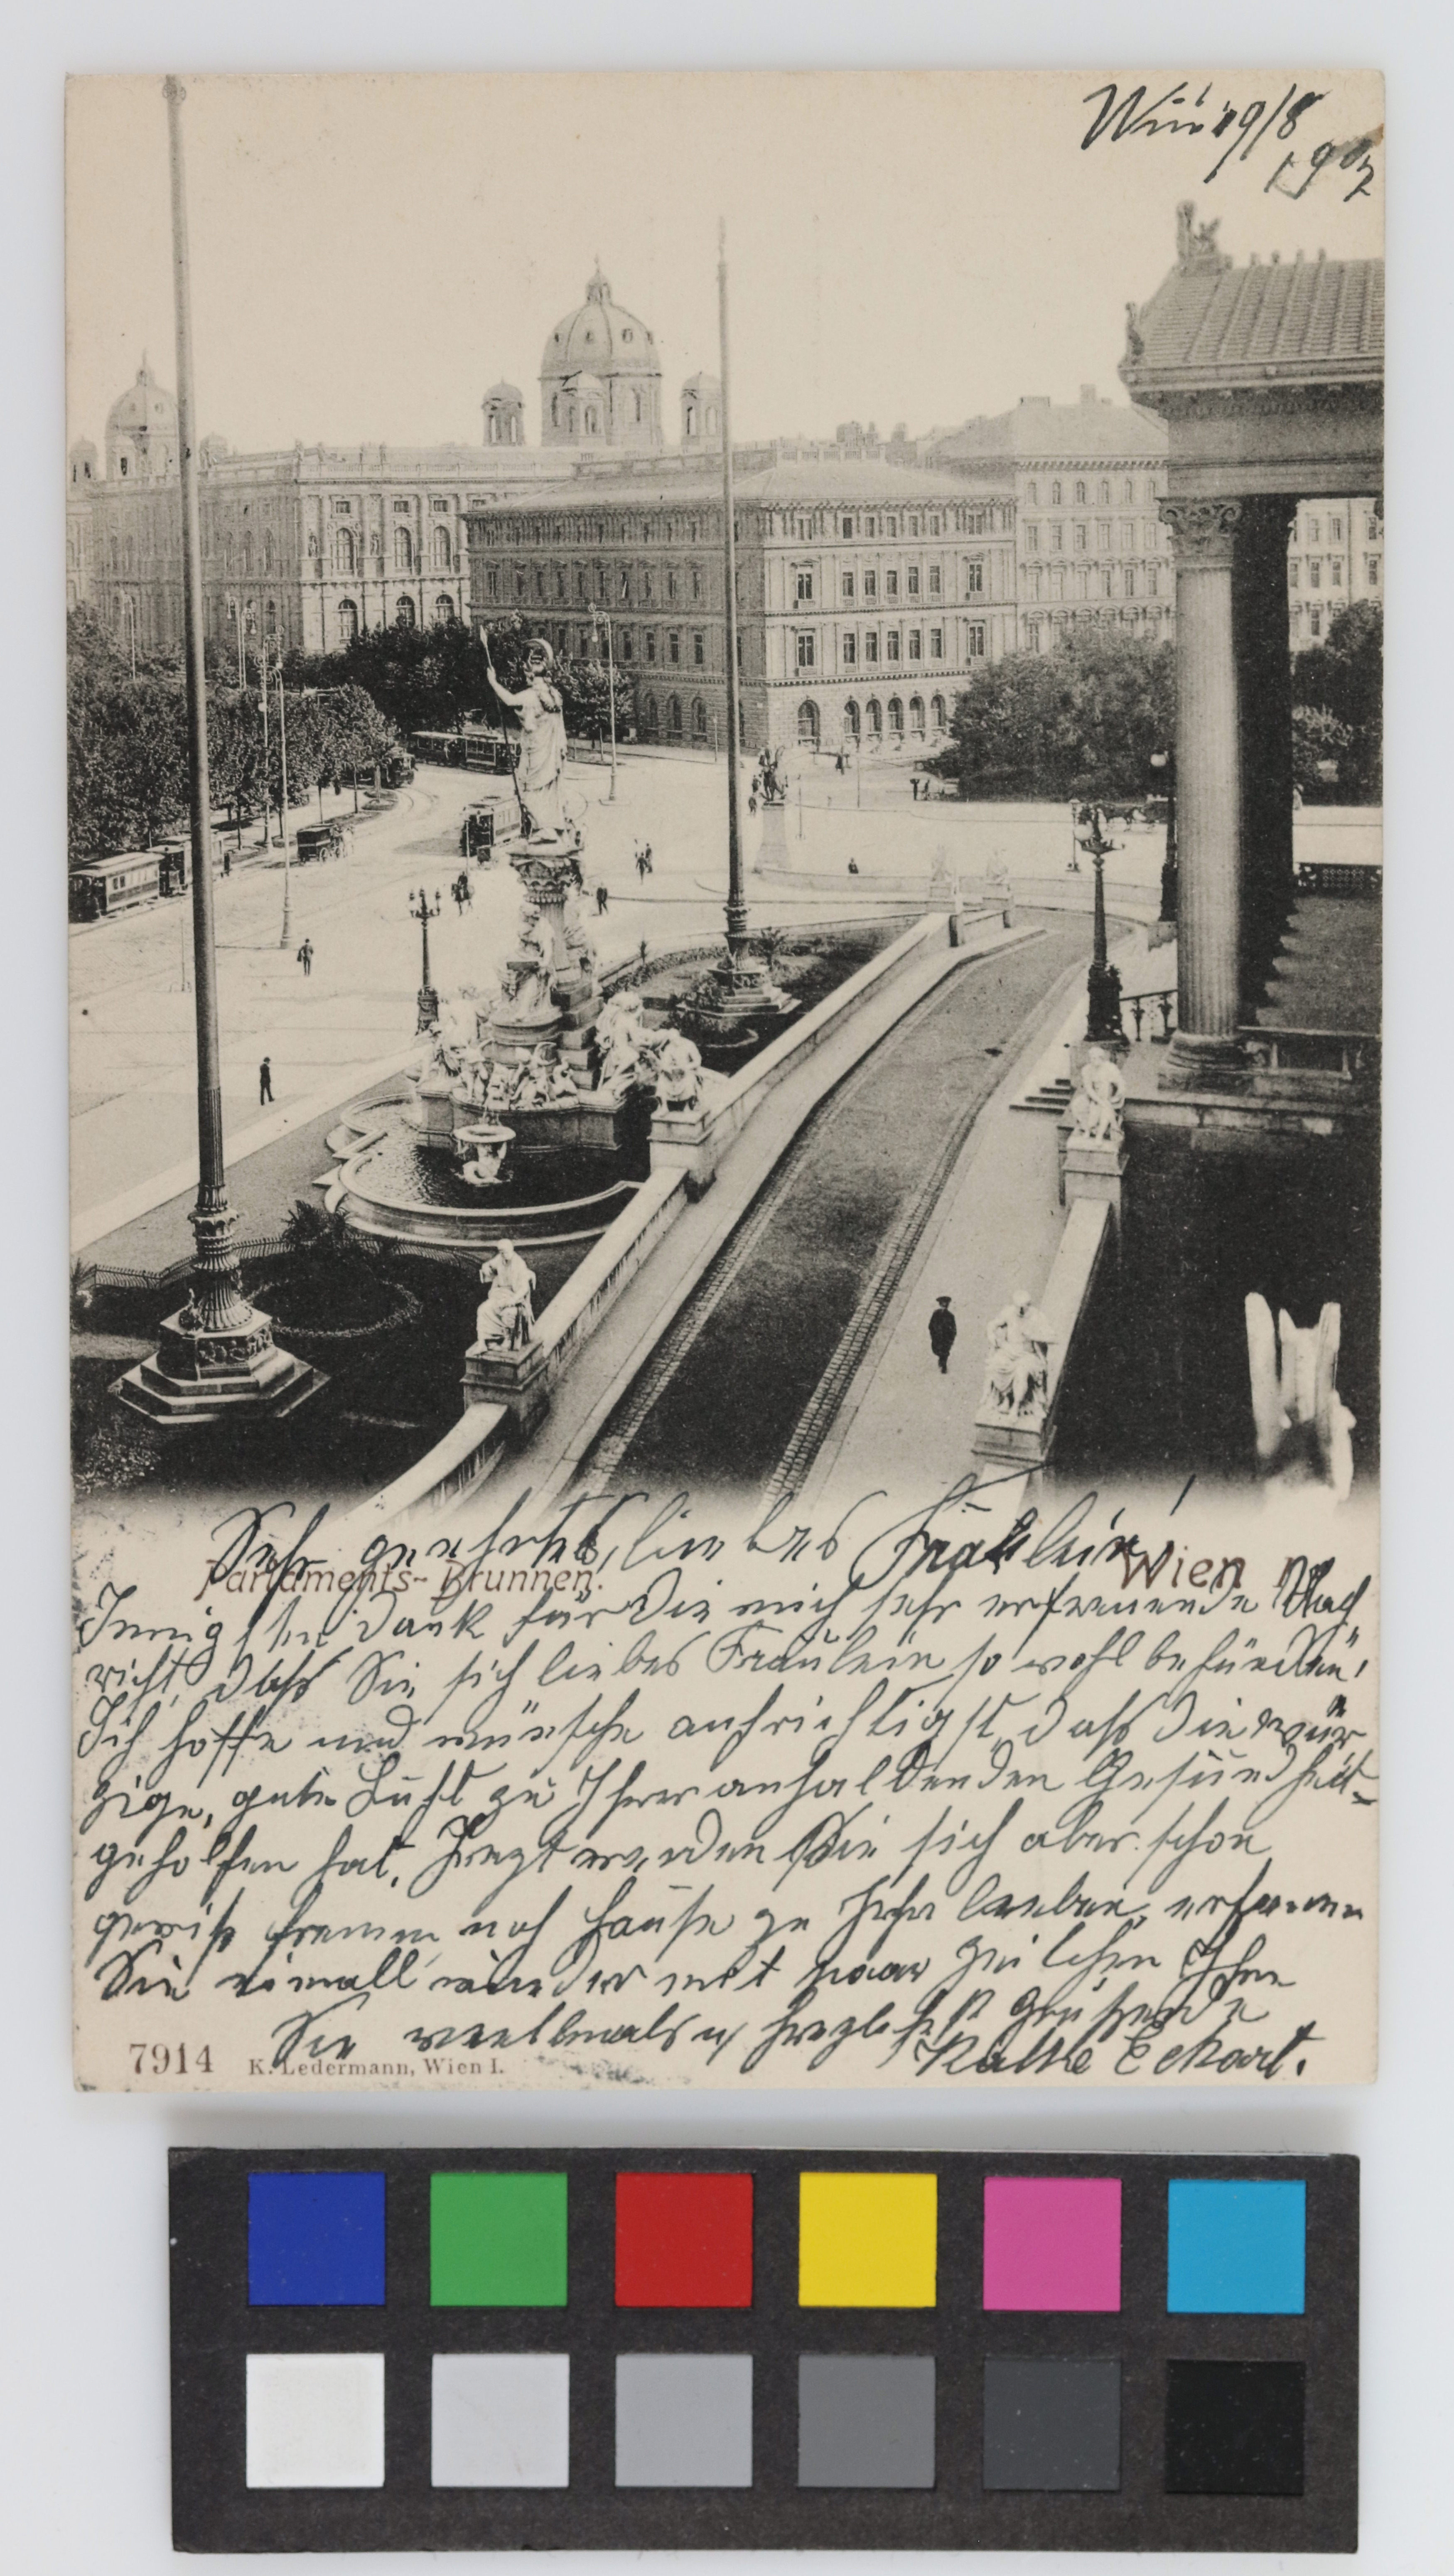 Wien 19/8
1902
Sehr geehrtes, liebes Fräulein!
Parlaments-Brunnen. Wien
Innigsten Dank für die mich sehr erfreuende Nach
richt, dass Sie sich liebes Fräulein so wohl befinden!
Ich hoffe und wünsche aufrichtigst, dass die wür
zige, gute Luft zu Ihrer anhaltenden Gesundheit
geholfen hat. Jetzt werden Sie sich aber schon
gewiß nach Hause zu
Sie einmall wieder mit paar Zeilchen Ihre
Sie vielmals u herzlichst grüßende
Käthe Eckart.
7914 K. Ledermann, Wien I.